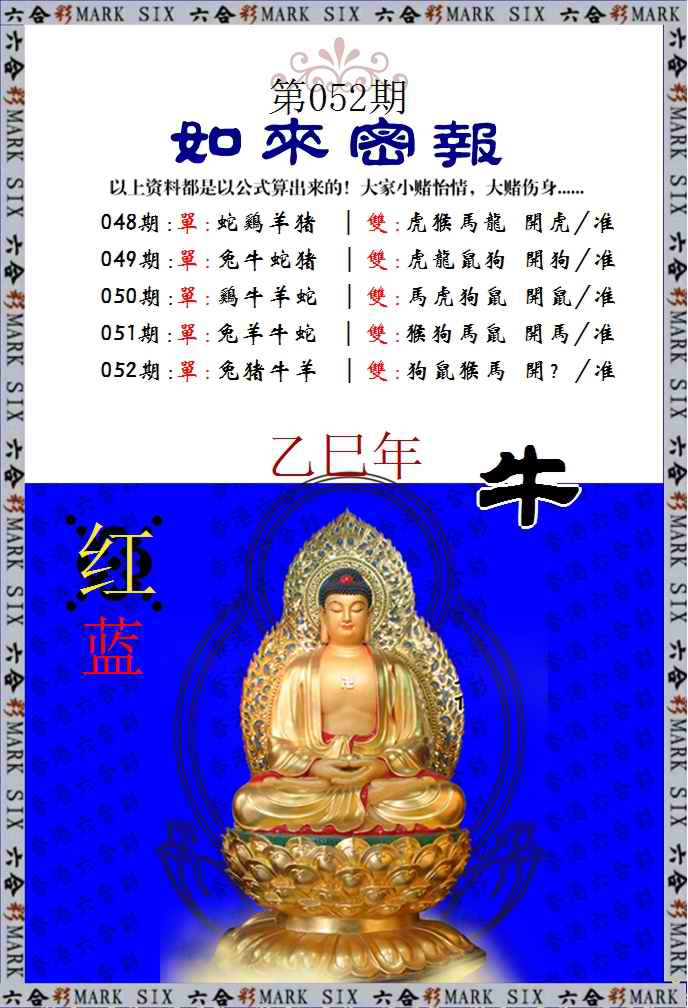 六合彩MARK SIX 六合彩MARK SIX 六合彩MARK SIX 六合彩MARK SIX
第052期
如來密報
以上资料都是以公式算出来的！大家小赌怡情，大赌伤身......
048期:單:蛇鷄羊猪 | 雙:虎猴馬龍 開虎/准
049期:單:兔牛蛇猪 | 雙:虎龍鼠狗 開狗/准
050期:單:鷄牛羊蛇 | 雙:馬虎狗鼠 開鼠/准
051期:單:兔羊牛蛇 | 雙:猴狗馬鼠 開馬/准
052期:單:兔猪牛羊 | 雙:狗鼠猴馬 開?/准
乙巳年
牛
红
蓝
六合彩MARK SIX 六合彩MARK SIX 六合彩MARK SIX 六合彩MARK SIX